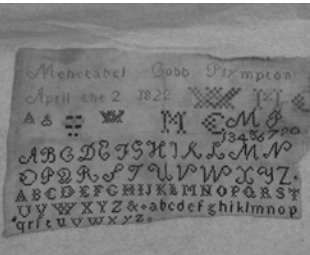 Mehetabel Cobb Plympton
April the 2 1822
M C M P
1 3 4 5 6 7 9 0
A B C D E F G H I K L M N
O P Q R S T U V W X Y Z
A B C D E F G H I J K L M N O P Q R S T
U V W X Y Z & a b c d e f g h i k l m n o p
q r s t u v w x y z